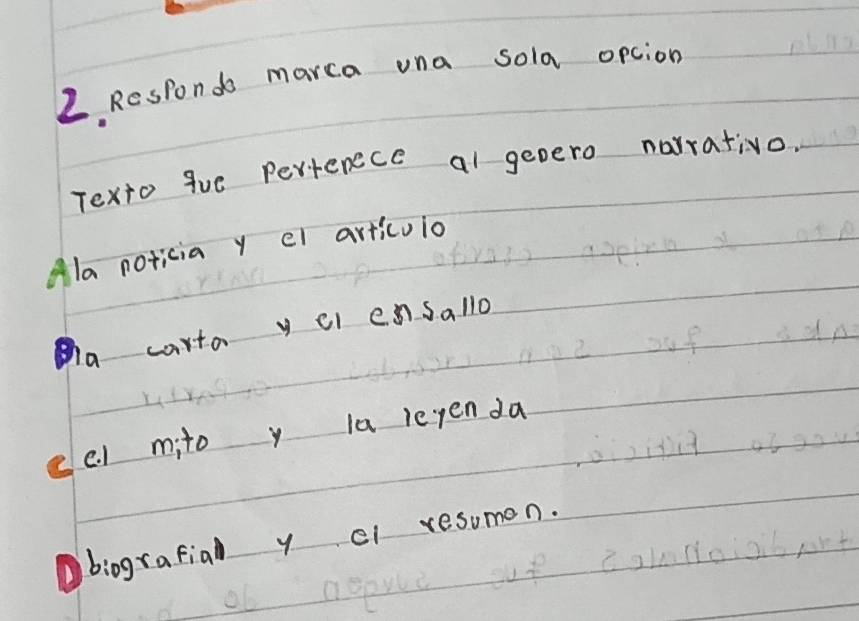 2. Responde marca una sola opcion
Texto que pertenece al genero narrativo.
A la noticia y el artículo
B la carta y el ensallo
C el mito y la leyenda
D biografial y el resumen.